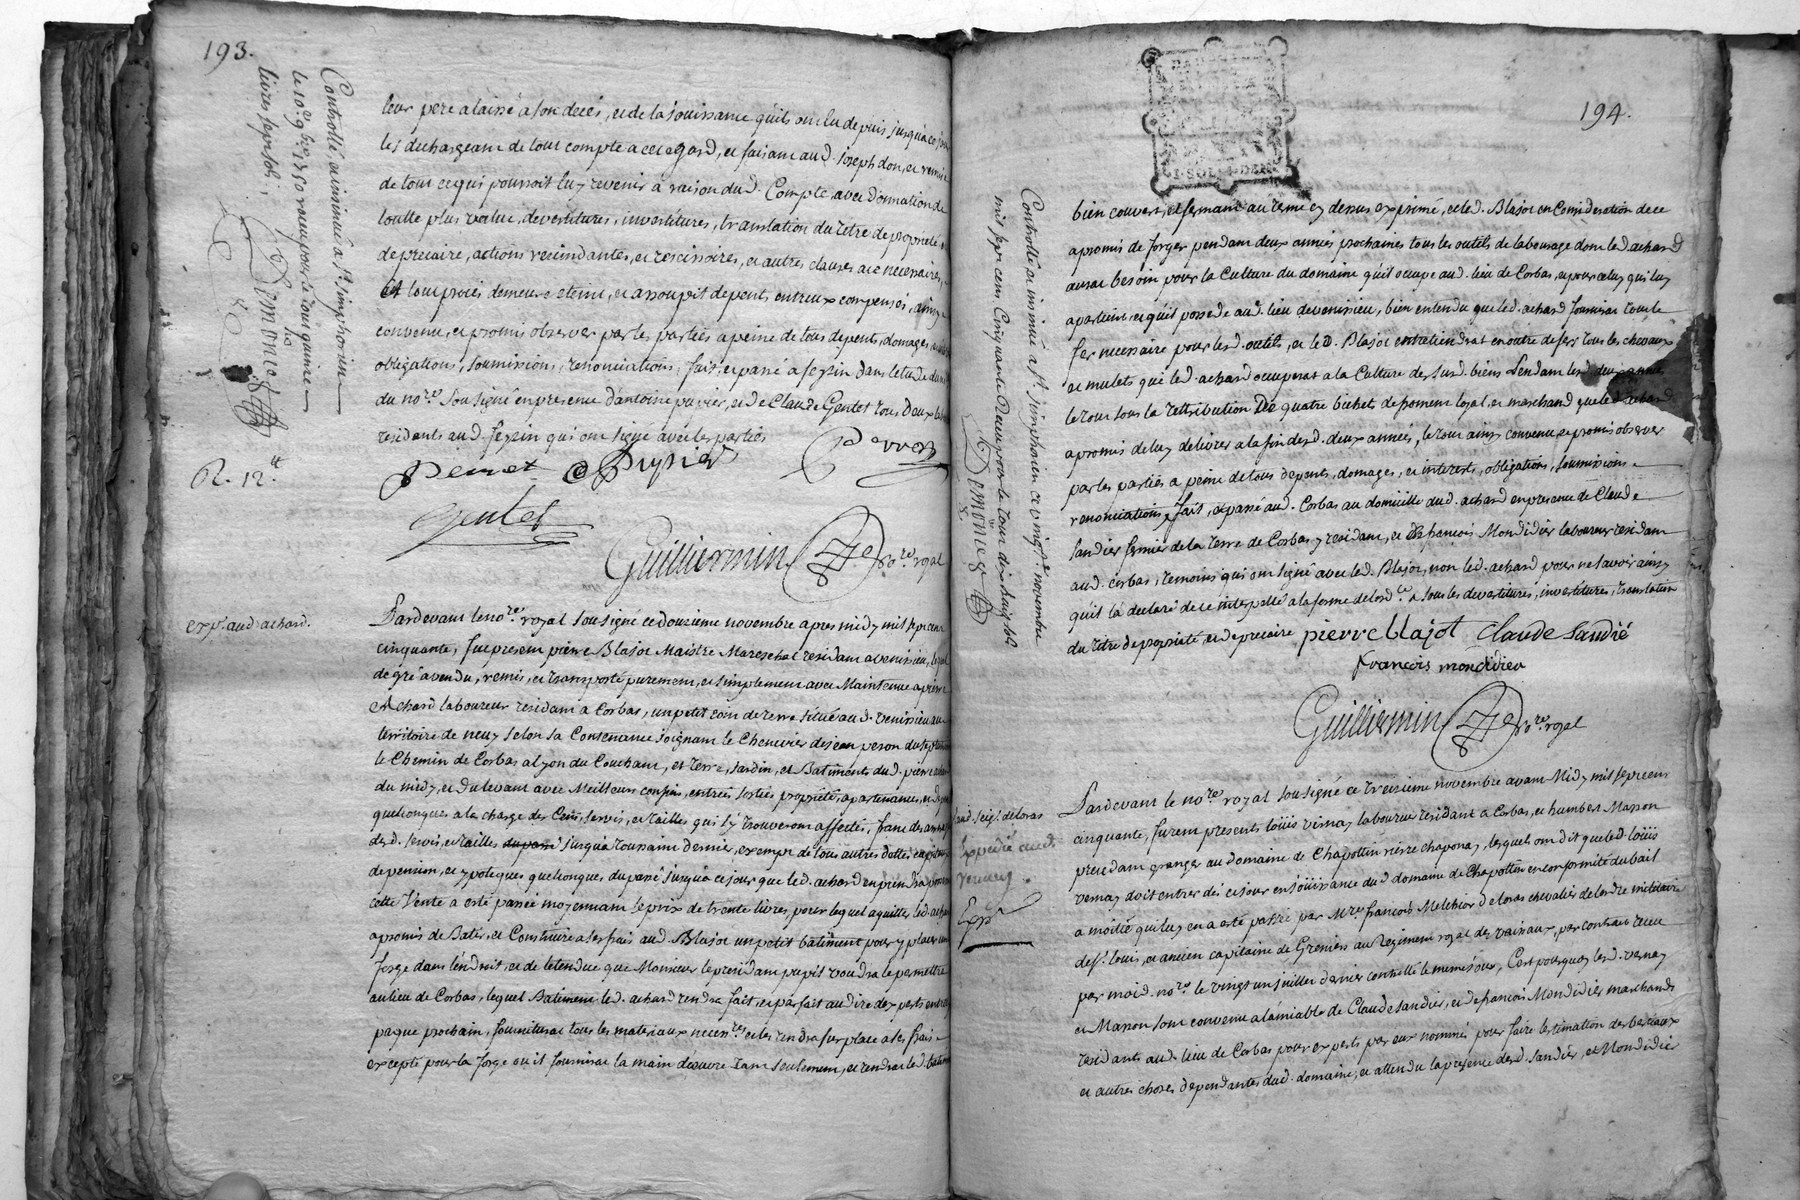 193.
Controllé a insinué à St. simphorien
le 10e. 9bre 1750 receu pour le tout quinze
livres sept sols,
Demoncel
leur pere a laissé a son decés, et de la jouissance quils ont eu depuis jusqu'a ce jour
les dechargeant de tout compte a cet egard, et faisant aud. joseph don, et remise
de tout ce qui pourroit luy revenir a raison dud. Compte, avec donnation de
toutte plus value, devestitures, investitures, translation du titre de propriete
de precaire, actions rescindantes, et rescisoires, et autres clauses a ce necessaires,
et tout procés demeure eteint, et assoupit depents entreux compensés, ainsy
convenu, et promis observer par les parties a peine de tous depents, domages
obligations, soumissions, renonciations, fait, et passé à feysin dans letude du
du nore. soussigné en presence d'antoine puvier, et de Claude Gentet tous deux
residants aud. feysin qui ont signé avec les parties
R. 12.s
Perret Pusier Perron
Gentet
Guilliermin nore. royal
expé. aud. achard.
Pardevant le nore. royal soussigné ce douzieme novembre apres midy mil sept cent
cinquante, fut present pierre Blajot Maistre Mareschal residant a venissieu, lequel
de gré a vendu, remis, et transporté purement, et simplement avec Maintenue a pierre
Achard laboureur residant à Corbas, un petit coin de terre situé aud. venissieu au
territoire de neuy selon sa Contenance joignant le Chenevier de jean peron du septent
le Chemin de Corbas a lyon du Couchant, et terre, jardin, et Batiments dud. pierre
du midy, et du levant avec Meilleurs confins, entrées sorties proprieté, apartenances, et
quelconques a la charge des Cens, servis, et tailles qui sy trouveront affectés, franc des
desd. servis, et tailles du passé jusqua toussaint dernier, exempt de tous autres dettes
de pension, et ypoteques quelconques du passé jusqua ce jour que led. achard en prendra
cette Vente a esté passée moyennant le prix de trente livres, pour lequel acquitter led. achard
a promis de Batir, et Construire a ses frais aud. Blajot un petit batiment pour y placer une
forge dans l'endroit, et de letendue que Monsieur le president pupil voudra le permettre
au lieu de Corbas, lequel Batiment led. achard rendra fait, et parfait au dire dexperts entre cy
paque prochain, fourniturat tous les materiaux necessres et les rendra sur place a ses frais
excepté pour la forge ou il fournirat la main d'œuvre tant seulement, et rendrat led. batiment
194.
Controllé et insinué à St. simphorien ce vingte. novembre
mil sept cent Cinquante Receu pour le tout dix huit sols
Demoncel
bien couvert, et fermant au terme cy dessus exprimé, et led. Blajot en Consideration de ce
a promis de forger pendant deux années prochaines tous les outils de labourage dont led. achard
aurat besoin pour la Culture du domaine quil occupe aud. lieu de Corbas, et pour celuy qui luy
apartient, et quil possede aud. lieu de venissieu, bien entendu que led. achard fournirat tout le
fer necessaire pour lesd. outils, et led. Blajot entretiendrat en outre de fer tous les chevaux
et mulets que led. achard occuperat a la Culture desusd. biens pendant lesd. deux années
le tout sous la rettribution de quatre bichet de froment loyal, et marchand que led. achard
a promis de luy delivrer a la fin desd. deux années, le tout ainsy convenu, et promis observer
par les parties a peine de tous depents, domages, et interests, obligations, soumissions
renonciations, fait, et passé aud. Corbas au domicille dud. achard en presence de Claude
Sandier fermier de la terre de Corbas y residant, et de françois Mondidier laboureur residant
aud. corbas, temoins qui ont signé avec led. Blajot, non led. achard pour ne savoir ainsy
quil la declaré de ce interpellé a la forme de lordce. a sous les devestitures, investitures, translation
du titre de proprieté, et de precaire pierre blajot Claude Sandié
francois mondidier
Guilliermin nore. royal
aud. seigr. deloras
Expedié aud.
vernay.
Expé.
Pardevant le nore. royal soussigné ce treizieme novembre avant Midy mil sept cent
cinquante, furent presents loüis vernay laboureur residant à Corbas, et humbert Masson
precedant granger au domaine de Chapottin riere chaponay, lesquels ont dit que led. loüis
vernay doit entrer dés ce jour en joüissance dud. domaine de Chapottin en conformité du bail
a moitié qui luy en a esté passé par Mre. françois Melchior de loras chevalier de lordre militaire
de st. louis, et ancien capitaine de Greniers au Regiment royal des vaissaux, par contract receu
par moid. nore. le vingt un juillet dernier controllé le meme jour, Cest pourquoy lesd. vernay
et Masson sont convenu a lamiable de Claude sandier, et de françois Mondidier marchands
residants aud. lieu de Corbas pour experts par eux nommés pour faire lestimation des bestiaux
et autres choses dependantes dud. domaine, et attendu la presence desd. sandier, et Mondidier